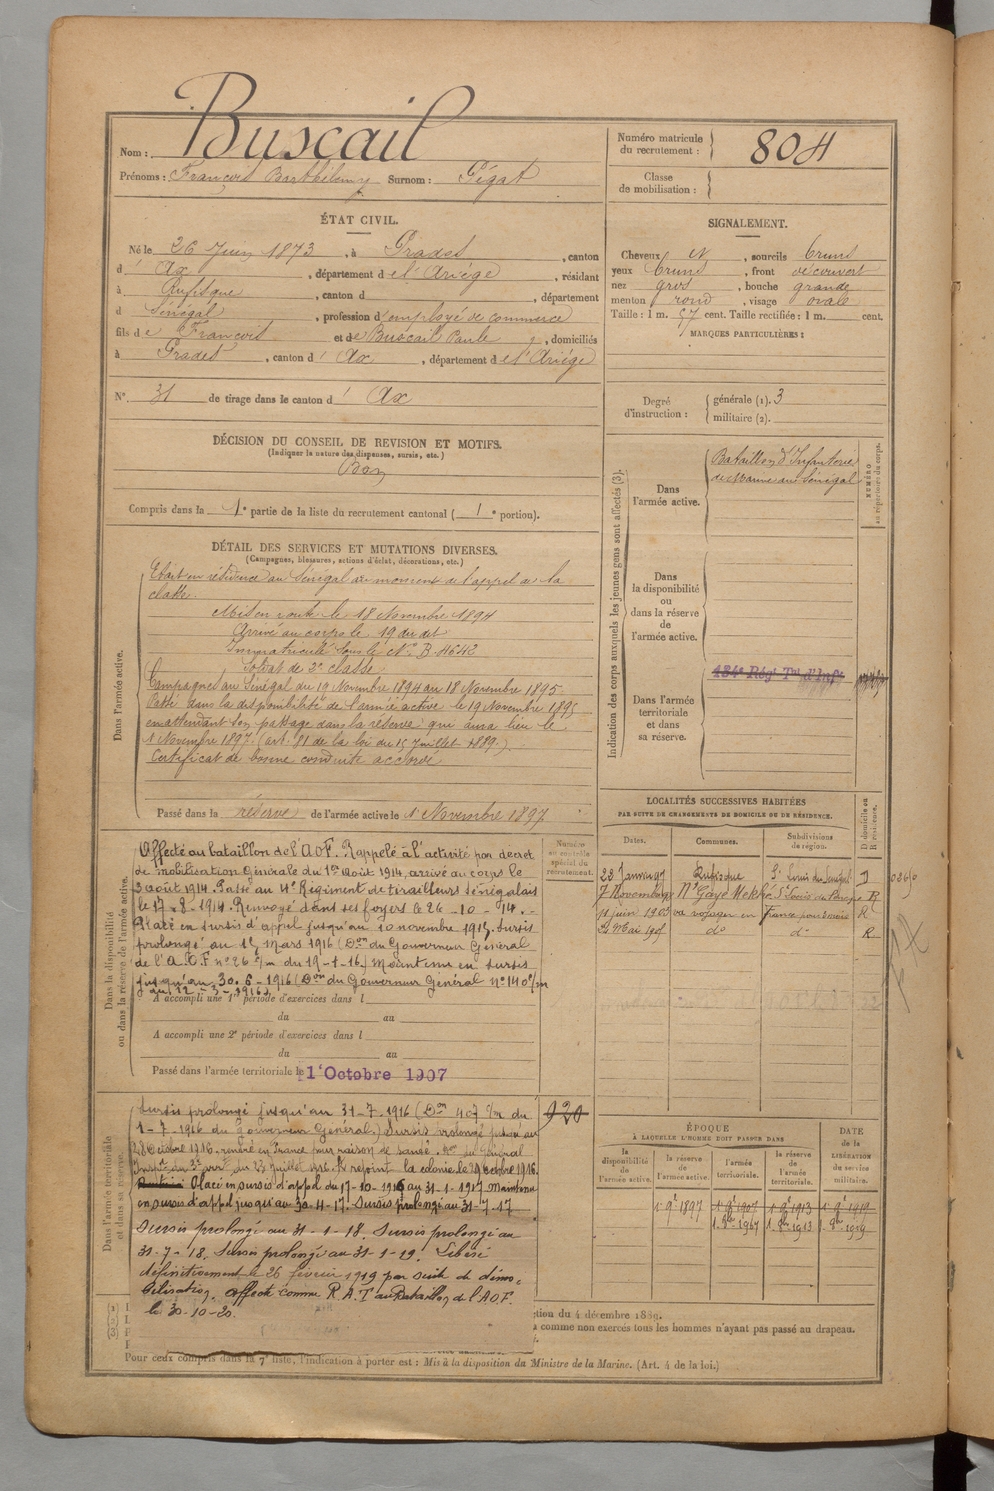 Nom : Buscail
Prénoms : François Barthélemy Surnom : Pégat
Numéro matricule du recrutement : 804
Classe de mobilisation :
ÉTAT CIVIL.
Né le 26 Juin 1873, à Prades, canton
d' Ax, département de l'Ariège, résidant
à Rufisque, canton d , département
d Sénégal, profession d'employé de commerce
fils de François et de Buscail Paule, domiciliés
à Prades, canton d' Ax, département de l'Ariége
N° 31 de tirage dans le canton d' Ax
DÉCISION DU CONSEIL DE REVISION ET MOTIFS.
(Indiquer la nature des dispenses, sursis, etc.)
Bon
Compris dans la 1e partie de la liste du recrutement cantonal ( 1e portion).
SIGNALEMENT.
Cheveux et, sourcils bruns
yeux bruns, front découvert
nez gros, bouche grande
menton rond, visage ovale
Taille : 1 m. 57 cent. Taille rectifiée : 1 m. cent.
MARQUES PARTICULIÈRES :
Degré d'instruction : générale (1). 3
militaire (2).
DÉTAIL DES SERVICES ET MUTATIONS DIVERSES.
(Campagnes, blessures, actions d'éclat, décorations, etc.)
Dans l'armée active.
Etait en résidence au Sénégal au moment de l'appel de la
classe.
Mis en route le 18 Novembre 1894
Arrivé au corps le 19 du dit
Immatriculé sous le N° B. 4642
Soldat de 2e classe
Campagnes au Sénégal du 19 Novembre 1894 au 18 Novembre 1895
Passé dans la disponibilité de l'armée active le 19 Novembre 1895
en attendant son passage dans la réserve qui aura lieu le
1 Novembre 1897. (art. 81 de la loi du 15 Juillet 1889.)
Certificat de bonne conduite accordé
Passé dans la réserve de l'armée active le 1 Novembre 1897
Indication des corps auxquels les jeunes gens sont affectés (3).
NUMÉRO au répertoire du corps.
Dans l'armée active.
Bataillon d'Infanterie
de Marine au Sénégal
Dans la disponibilité ou dans la réserve de l'armée active.
Dans l'armée territoriale et dans sa réserve.
134e Régt Tal d'Inft
LOCALITÉS SUCCESSIVES HABITÉES
PAR SUITE DE CHANGEMENTS DE DOMICILE OU DE RÉSIDENCE.
Dates. Communes. Subdivisions de région. D domicile ou R résidence.
28 Janvier 97 Rufisque St Louis du Sénégal D
7 Novembre St Louis R
11 juin 1903 va voyager en France R
24 Mai 1905 do do R
Dans la disponibilité ou dans la réserve de l'armée active.
Numéro au contrôle spécial du recrutement.
Affecté au bataillon de l'AOF. Rappelé à l'activité par décret
de mobilisation Générale du 1er Août 1914, arrivé au corps le
3 août 1914. Passé au 4e Régiment de tirailleurs sénégalais
le 17-8-1914. Renvoyé dans ses foyers le 26-10-14.
Placé en sursis d'appel jusqu'au 10 novembre 1915. Sursis
prolongé au 15 mars 1916 (Don du Gouverneur Général
de l'A.O.F n° 26 c/m du 19-1-16) maintenu en sursis
jusqu'au 30-6-1916 (Don du Gouverneur Général n° 140 c/m
du 22-3-1916).
A accompli une 1re période d'exercices dans l
du au
A accompli une 2e période d'exercices dans l
du au
Passé dans l'armée territoriale le 1er Octobre 1907
Dans l'armée territoriale et dans sa réserve.
920
Sursis prolongé jusqu'au 31-7-1916 (Don 407 c/m du
1-7-1916 du Gouverneur Général.) Sursis prolongé jusqu'au
28 Octobre 1916. rentré en France pour raison de santé.
du 27 Juillet 1916. rejoint la colonie le 29 octobre 1916.
Placé en sursis d'appel du 17-10-1916 au 31-1-1917 Maintenu
en sursis d'appel jusqu'au 30-4-17. Sursis prolongé au 31-7-17
Sursis prolongé au 31-1-18. Sursis prolongé au
31-7-18. Sursis prolongé au 31-1-19. Libéré
définitivement le 26 février 1919 par suite de démo-
bilisation. Affecté comme R.A.T au Bataillon de l'AOF.
le 30-10-20.
ÉPOQUE
À LAQUELLE L'HOMME DOIT PASSER DANS
DATE de la LIBÉRATION du service militaire.
la disponibilité de l'armée active. la réserve de l'armée active. l'armée territoriale. la réserve de l'armée territoriale.
1 9bre 1897 1 9bre 1907 1 9bre 1913 1 9bre 1919
1. 8bre 1907 1. 8bre 1913 1. 8bre 1919
tion du 4 décembre 1889.
a comme non exercés tous les hommes n'ayant pas passé au drapeau.
Pour ceux compris dans la 7e liste, l'indication à porter est : Mis à la disposition du Ministre de la Marine. (Art. 4 de la loi.)